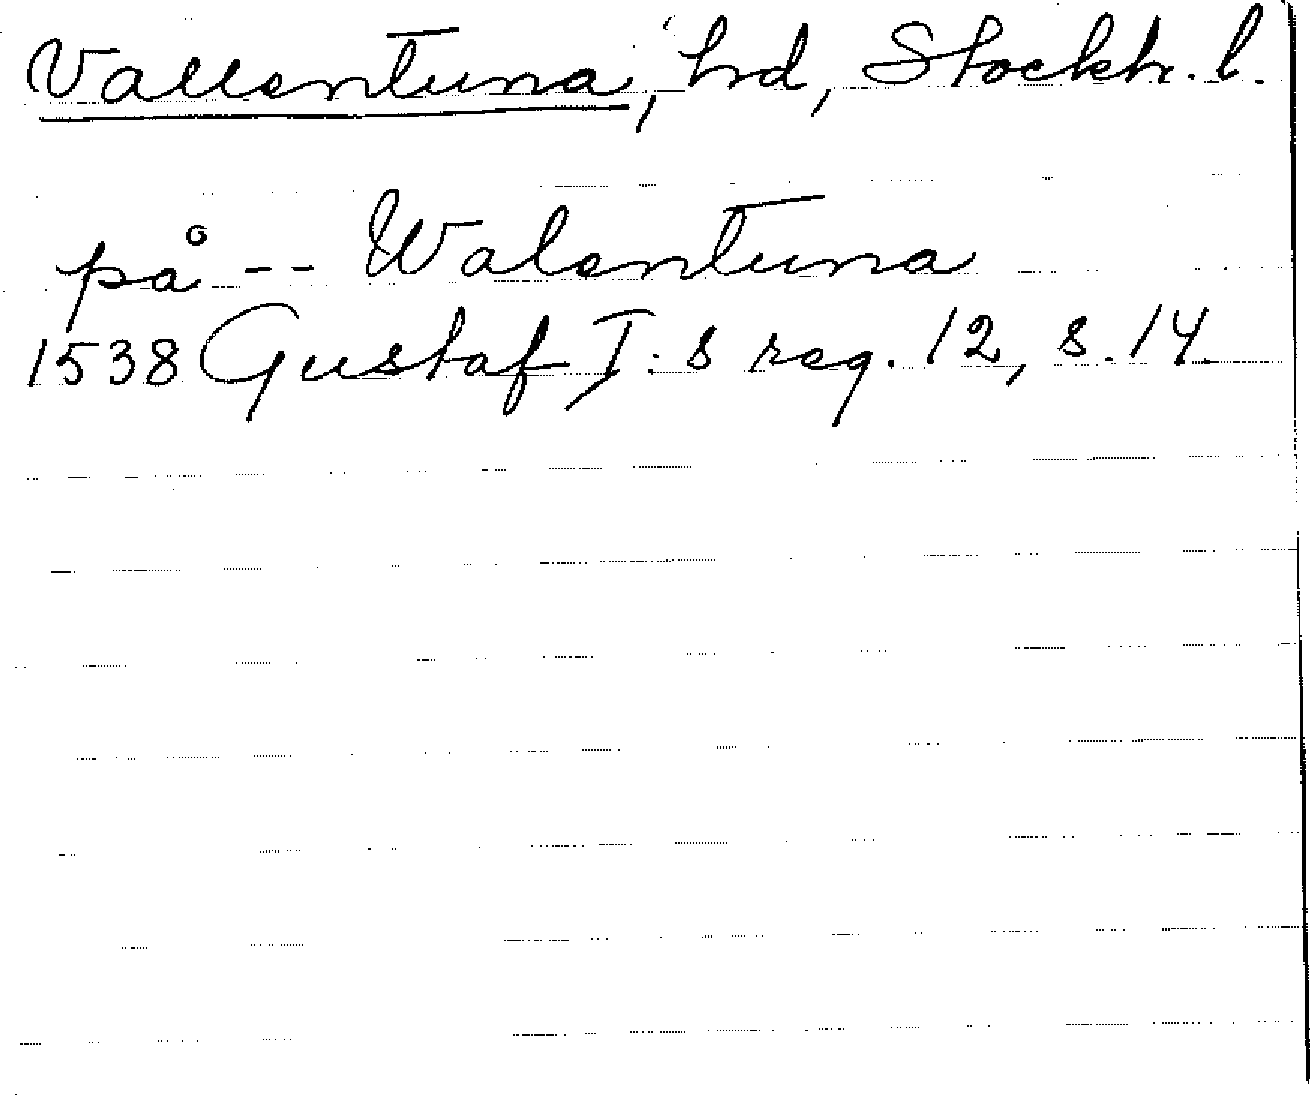 Vallentuna, hd, Stockh. l.
på -- Walentuna
1538 Gustaf I:s reg. 12, s. 14.